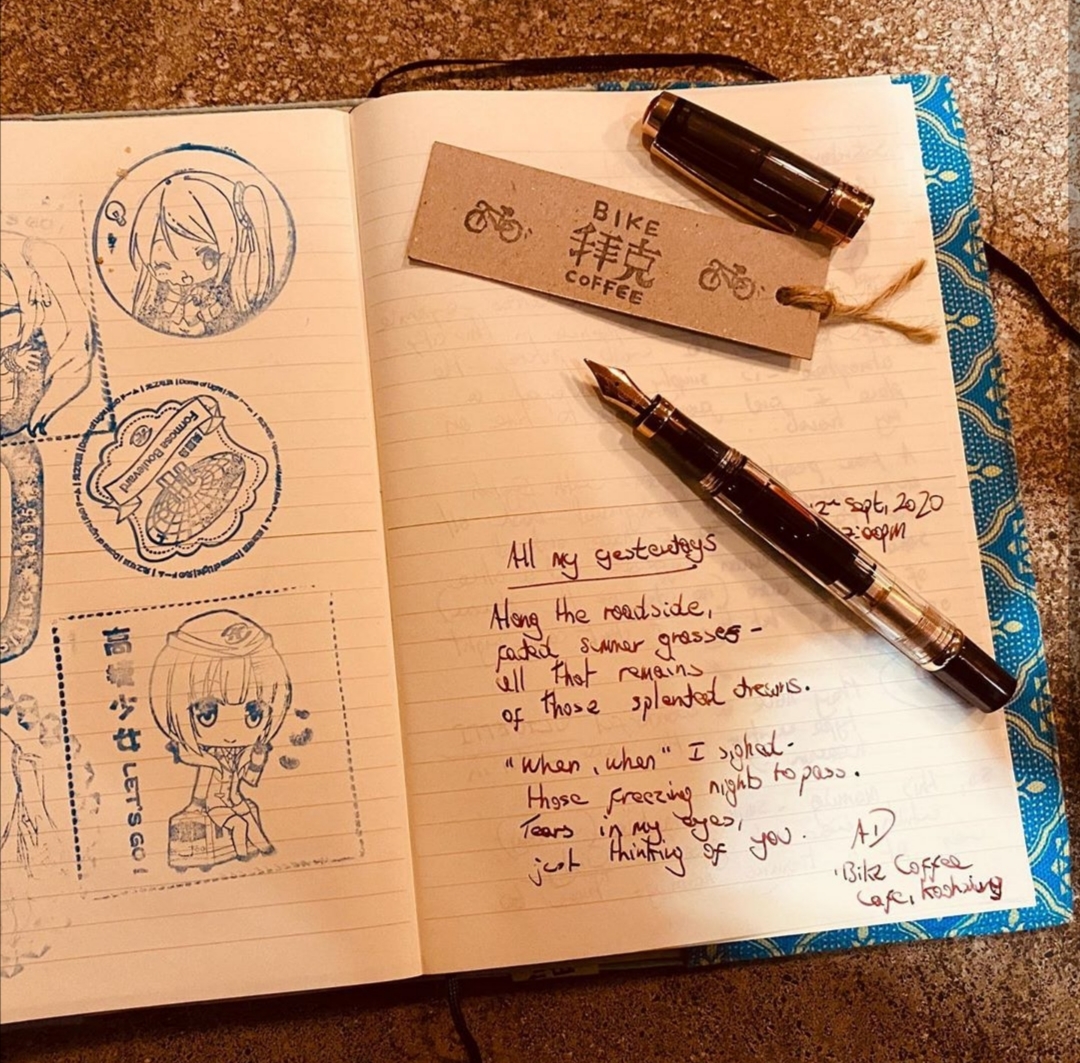 高捷少女 LET'S GO!
Formosa Boulevard
Dome of Light
BIKE
拜克
COFFEE
Sept, 2020
All my yesterdays
Along the roadside,
faded summer grasses -
all that remains
of those splented dreams.
"When, when" I sighed -
those freezing nights to pass.
Tears in my eyes,
just thinking of you.
AD
Bike Coffee
Cafe,